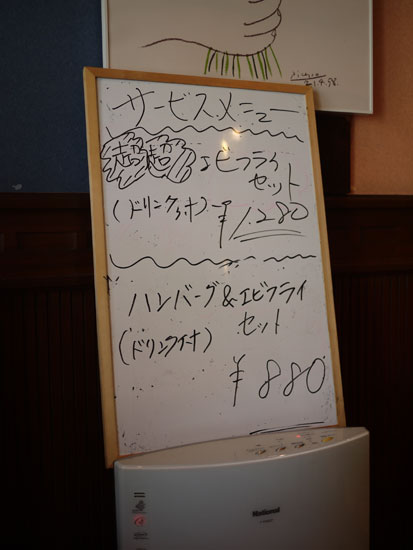 Picasso
21.4.58.
サービスメニュー
超超 エビフライ
セット
(ドリンク付)
¥1,280
ハンバーグ&エビフライ
セット
(ドリンク付)
¥880
National